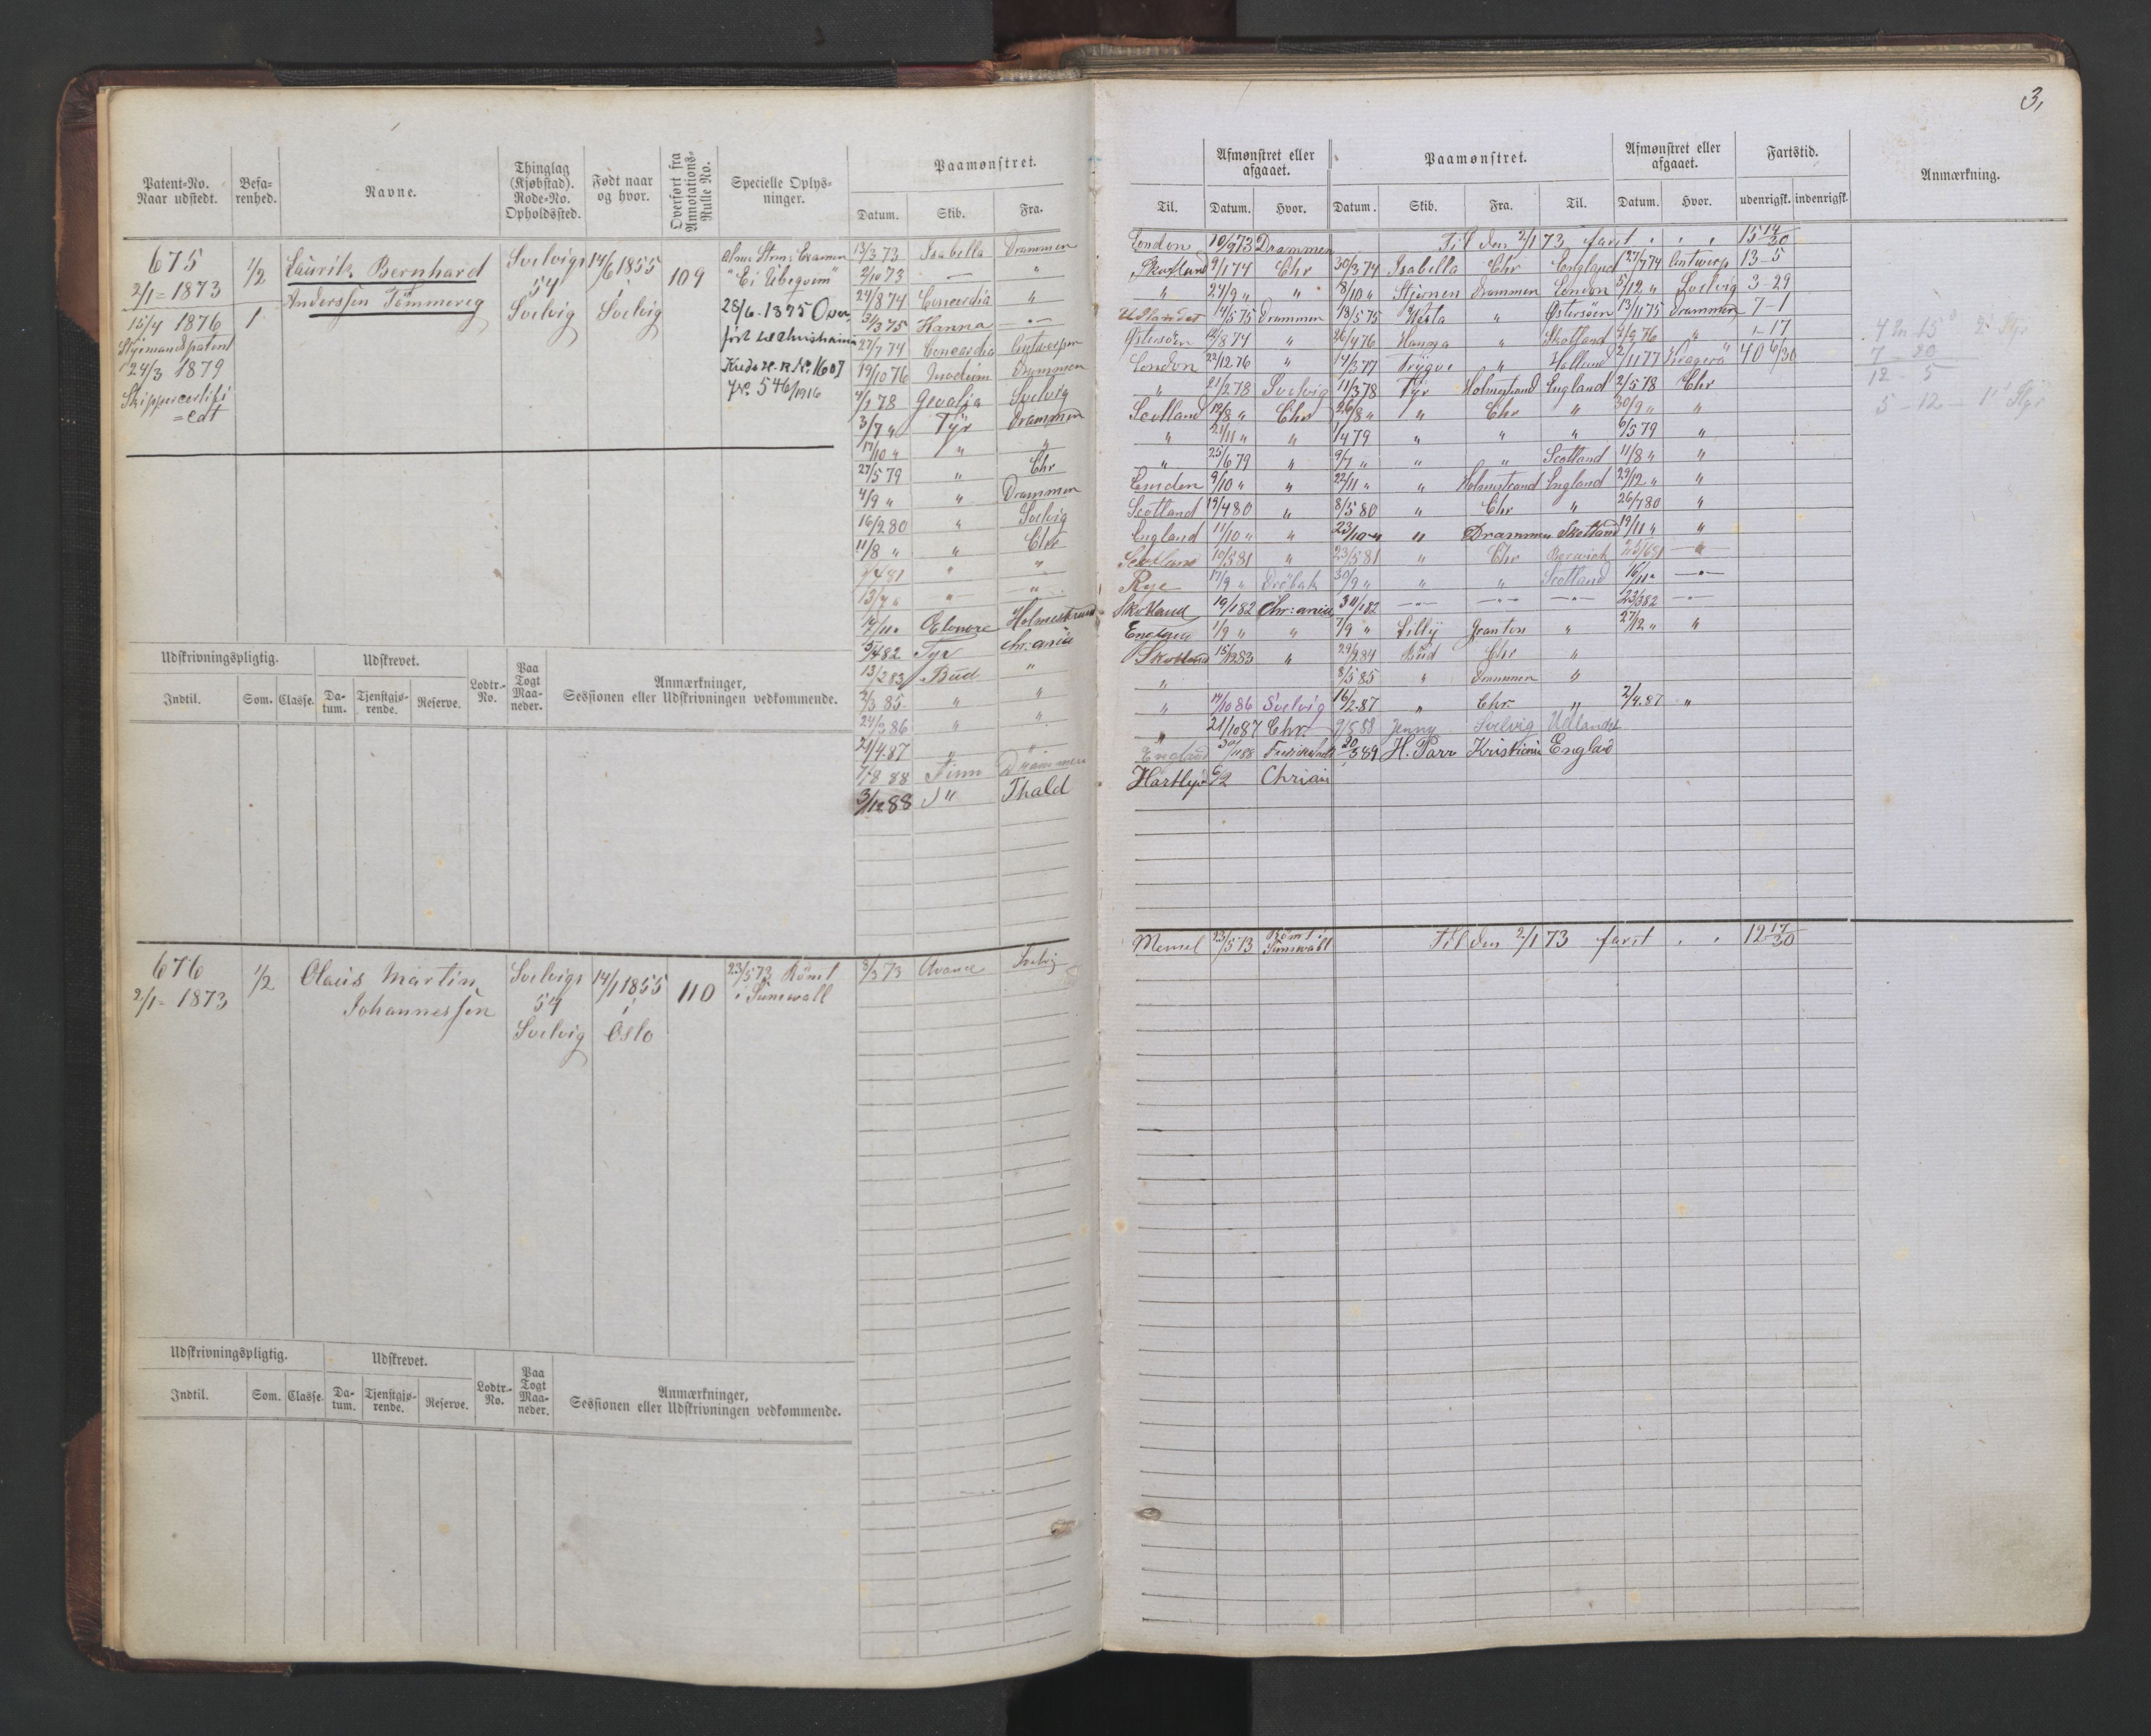 3,
Patent=No.
Naar udstedt.
Befa=
renhed.
Navne.
Thinglag
(Kjøbstad).
Rode=No.
Opholdssted.
Født naar
og hvor.
Overført fra
Annotations=
Rulle No.
Specielle Oplys=
ninger.
Paamønstret.
Datum. Skib. Fra.
675
2/1 = 1873
15/4 1876
Styrmandspatent
24/3 1879
Skippercertifi
=cat
1/2
1
Laurik Bernhard
Anderssen Tømmereg
Svelvigs
54
Svelvig
14/6 1855
i
Svelvig
109
"Ei Übeqvem"
28/6-1895 Over
ført til Christiania
Kreds H.R. No. 1607
Jr. 546/1916
13/3 73 Isabella Drammen
2/10 73 — "
24/8 74 Concordia "
3/3 75 Hanna — " —
27/7 74 Concordia Antwerpen
19/10 76 Drammen
4/1 78 Gevalia Svelvig
3/7 " Tÿr Drammen
17/10 " " "
27/5 79 " Chr
4/9 " " Drammen
16/2 80 " Svelvig
11/8 " " Chr
7/4 81 " "
13/7 " " "
Elenore Holmestrand
5/4 82 Tyr Chr:ania
13/2 83 Bud "
2/3 85 " "
24/3 86 " "
21/4 87 " "
7/8 88 Finn Drammen
3/12 88 " Thald
Udskrivningspligtig. Udskrevet. Lodtr=
No. Paa
Togt
Maa=
neder. Anmærkninger,
Sessionen eller Udskrivningen vedkommende.
Indtil. Som. Classe. Da=
tum. Tjenstgjø=
rende. Reserve.
676
2/1 = 1873
1/2
Olaus Martin
Johannessen
Svelvigs
54
Svelvig
14/1 1855
i
Oslo
110
23/5 73 Rømt
i Sunswall
8/3 73 Avance Svelvig
Udskrivningspligtig. Udskrevet. Lodtr=
No. Paa
Togt
Maa=
neder. Anmærkninger,
Sessionen eller Udskrivningen vedkommende.
Indtil. Som. Classe. Da=
tum. Tjenstgjø=
rende. Reserve.
Afmønstret eller
afgaaet.
Paamønstret.
Afmønstret eller
afgaaet.
Fartstid.
Anmærkning.
Til. Datum. Hvor. Datum. Skib. Fra. Til. Datum. Hvor. udenrigsk. indenrigsk.
London 10/9 73 Drammen Til den 2/1 73 farit " " " 15 14/30
Skotland 9/1 74 Chr 30/3 74 Isabella Chr England 27/7 74 Antwerp 13-5
" 24/9 " " 8/10 " Stjernen Drammen London 5/12 " Svelvig 3-29
Udlandet 14/5 75 Drammen 18/5 75 Vesta " Østersøen 13/11 75 Drammen 7-1
Østersøen /8 74 " 26/4 76 Hansa " Skotland 4/9 76 " 1-17
London 22/12 76 " 14/3 77 Trÿgve " Holland 2/11 77 Kragerø 40 6/30
" 21/2 78 Svelvig 11/3 78 Tyr Holmestrand England 2/5 78 Chr
Scotland 12/8 " Chr 26/8 " " Chr " 30/9 " "
" 21/11 " " 1/4 79 " " " 6/5 79 "
" 25/6 79 " 9/7 " " " Scotland 11/8 " "
Emden 9/10 " " 22/11 " " Holmestrand England 23/12 " "
Scotland 19/4 80 " 8/5 80 " Chr " 26/7 80 "
England 11/10 " " 23/10 " " Drammen Skotland 19/11 " "
Scotland 10/5 81 " 23/5 81 " Chr Berwick
Rye 17/9 " Drøbak 30/9 " " " Scotland 16/11 " — " —
Skotland 19/1 82 Chr:ania 30/1 82 — " — — " — — " — 23/3 82 — " —
England 1/9 " " 7/9 " Lillÿ Granton " 27/12 " "
Skotland 15/12 83 " 29/2 84 Bud Chr "
" 8/5 85 " Drammen "
" 14/10 86 Svelvig 16/2 87 " Chr " 2/4 87 "
" 21/10 87 Chr. 9/5 88 Jenny Svelvig Udlandet
England 30/11 88 Fredrikshald 20/3 89 H. Parr Kristiania Englad
Hartlyp 6/2 Chrian
4 2m 15 d 2' Styr
7 - 20
12 - 5
5 - 12 - 1' Styr
Memel 23/5 73 Rømt i
Sunswall Til den 2/1 73 farit " " 12 17/30